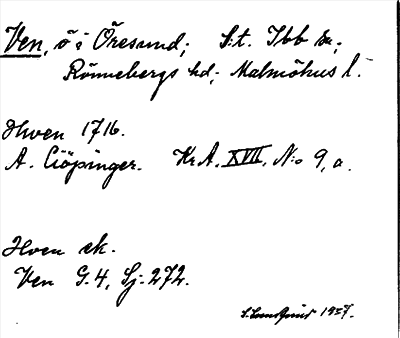 Ven, ö i Öresund; S:t. Ibb sn;
Rönnebergs hd; Malmöhus l.
Hwen 1716.
A. Ciöpinger. Kr.A. XVII, N:o 9, a.
Hven ek.
Ven G. 4, Sj. 272.
1937.